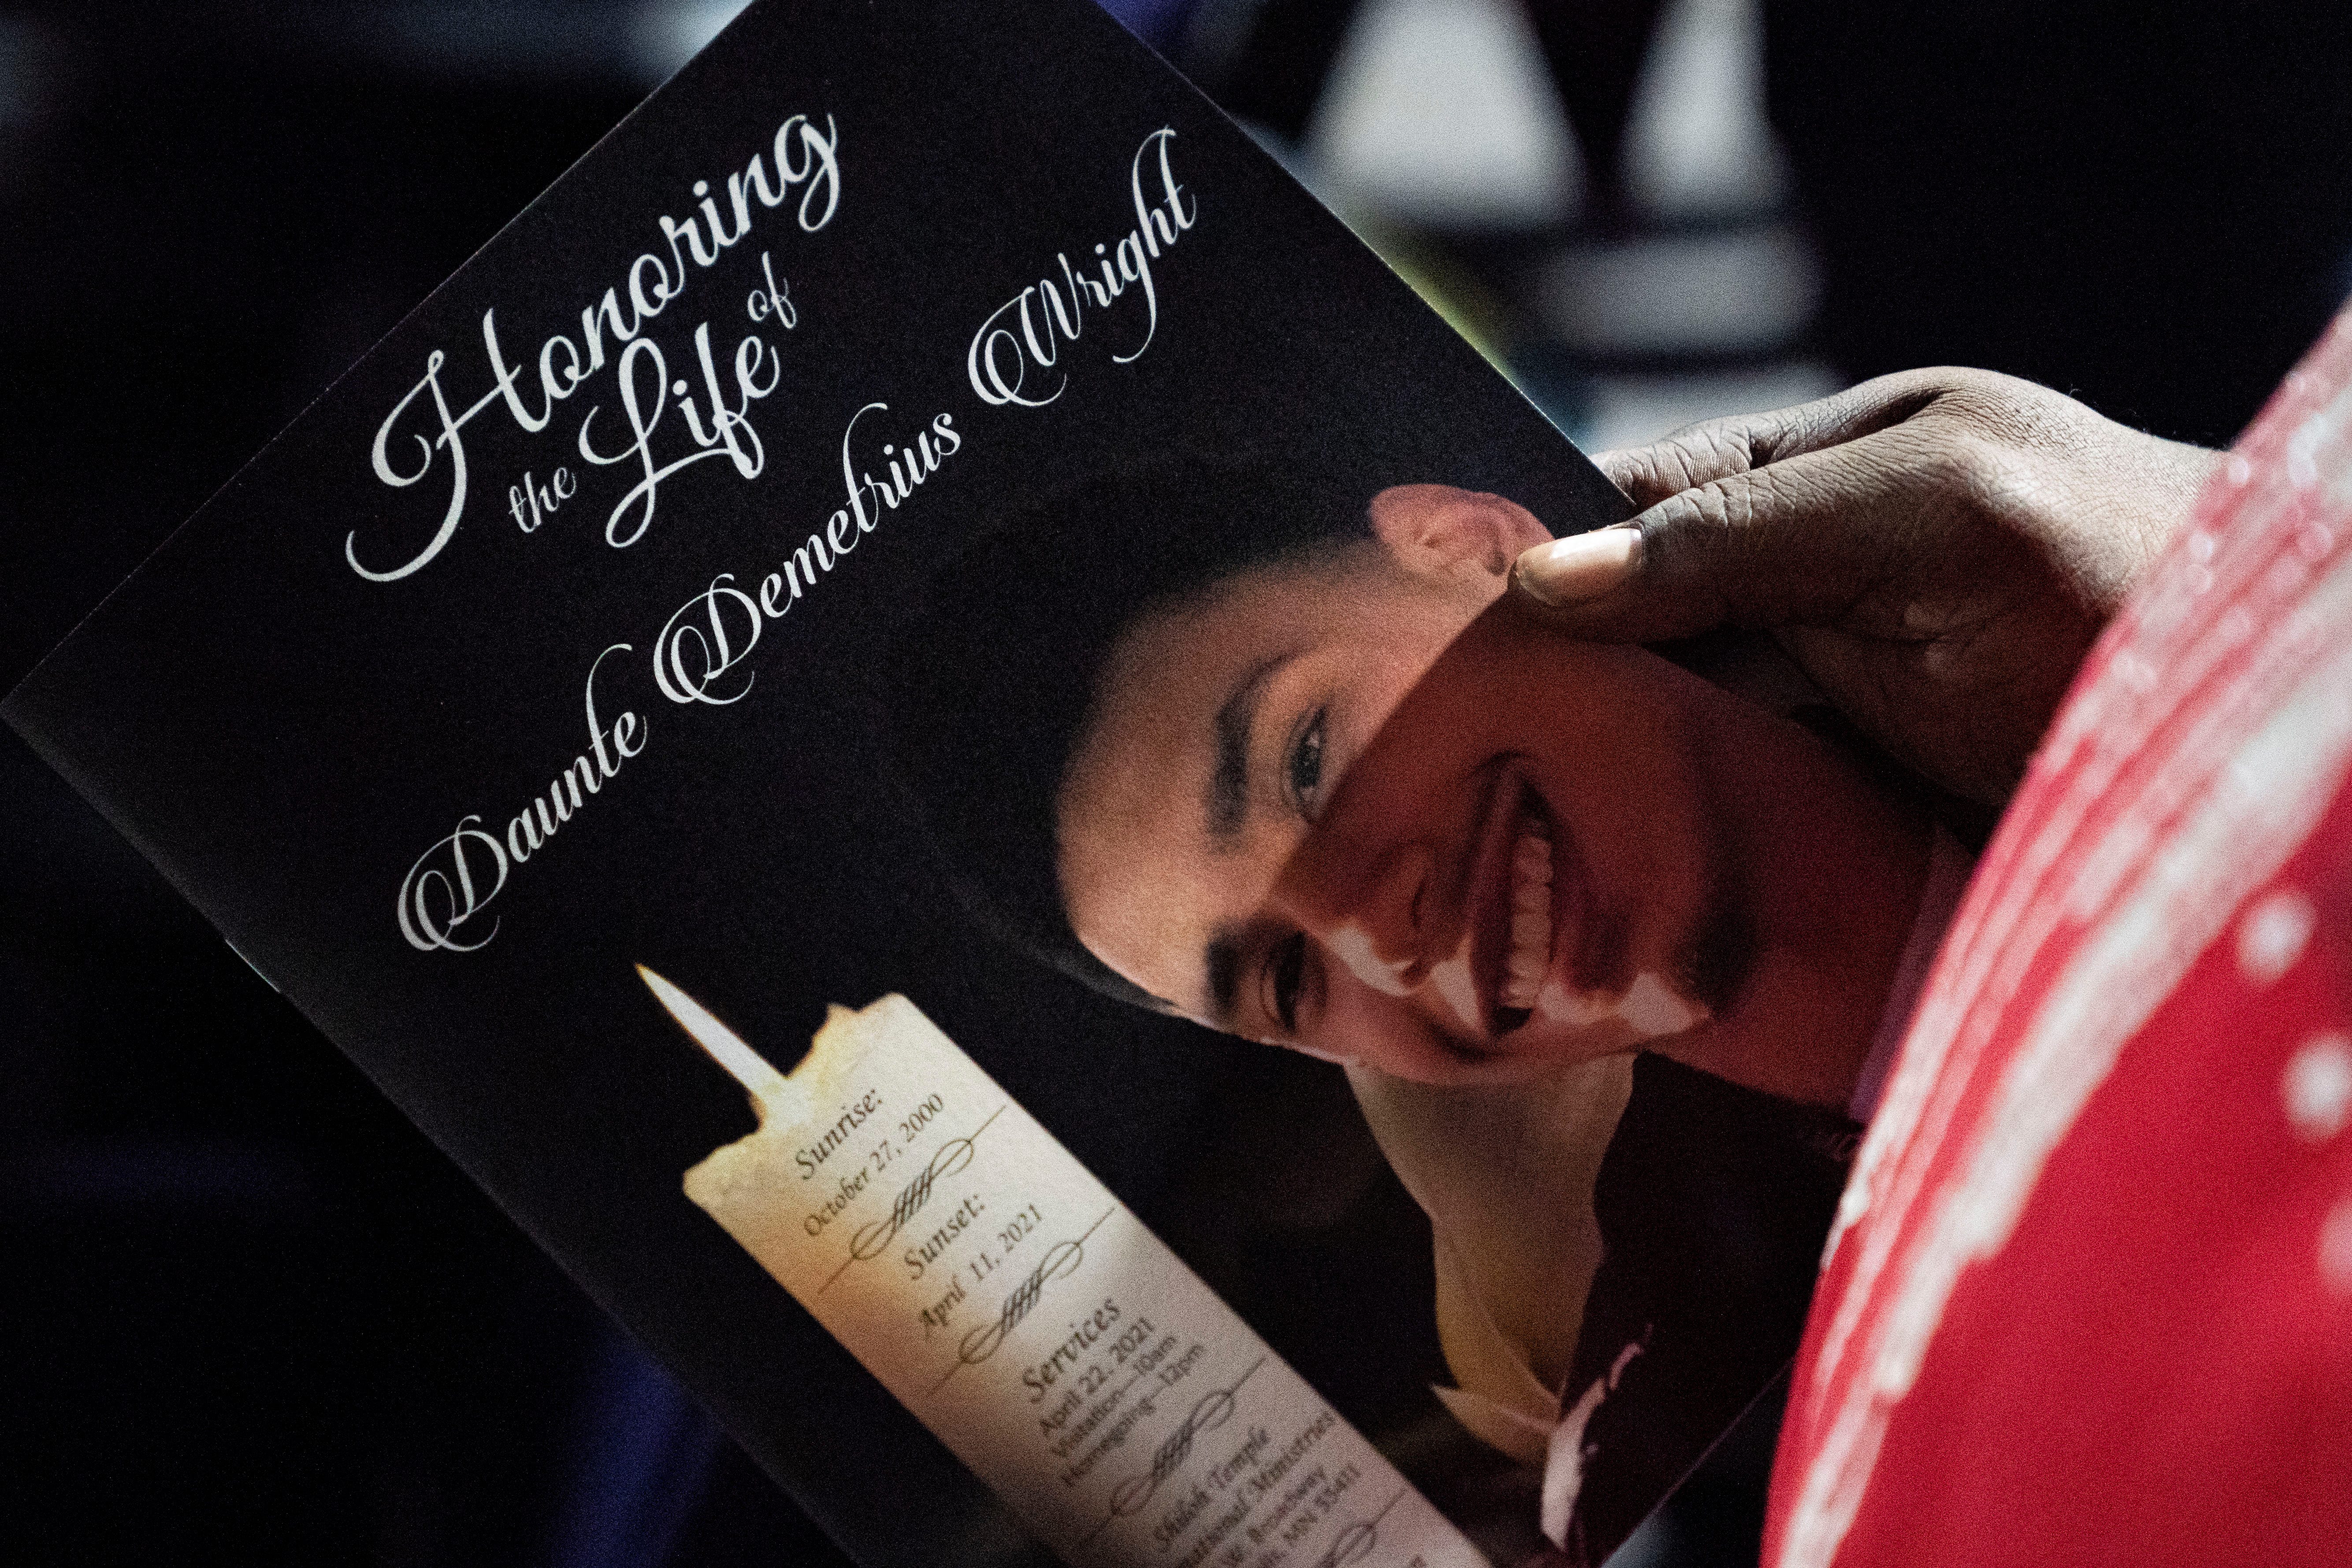 Honoring
the Life of
Daunte Demetrius Wright
Sunrise:
October 27, 2000
Sunset:
April 11, 2021
Services
April 22, 2021
Visitation—10am
Homegoing—12pm
Shiloh Temple
Ministries
W. Broadway
MN 55411